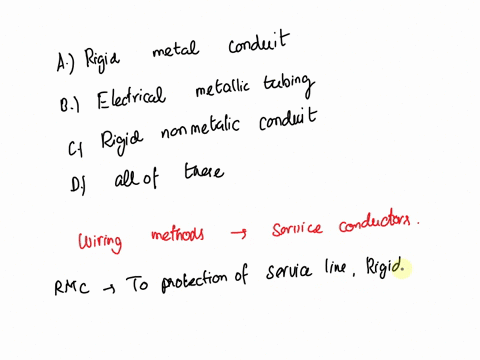 A.) Rigid metal conduit
B.) Electrical metallic tubing
C.) Rigid nonmetalic conduit
D.) all of these
Wiring methods → Service conductors.
RMC → To protection of service line, Rigid